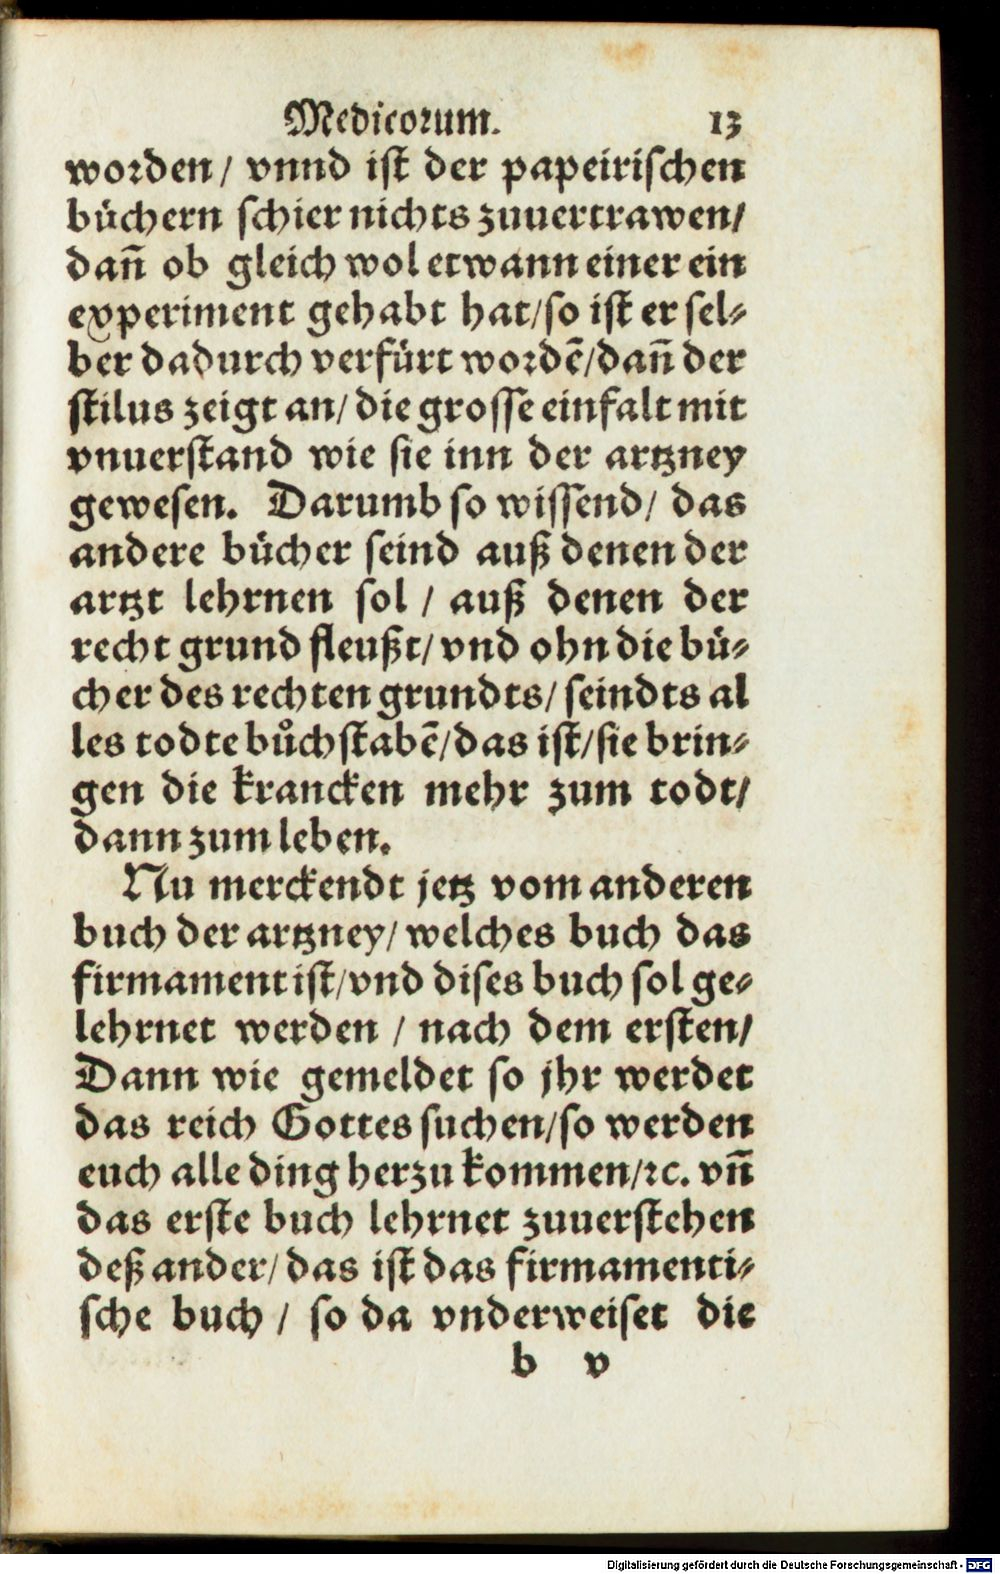 Medicorum. 13
worden/ vnnd ist der papeirischen
bůchern schier nichts zuuertrawen/
dañ ob gleich wol etwann einer ein
experiment gehabt hat/so ist er sel⸗
ber dadurch verfürt wordẽ/dañ der
stilus zeigt an/ die grosse einfalt mit
vnuerstand wie sie inn der artzney
gewesen. Darumb so wissend/ das
andere bůcher seind auß denen der
artzt lehrnen sol / auß denen der
recht grund fleußt/ vnd ohn die bů⸗
cher des rechten grundts/ seindts al
les todte bůchstabẽ/das ist/sie brin⸗
gen die krancken mehr zum todt/
dann zum leben.
Nu merckendt jetz vom anderen
buch der artzney/ welches buch das
firmament ist/vnd dises buch sol ge⸗
lehrnet werden / nach dem ersten/
Dann wie gemeldet so jhr werdet
das reich Gottes suchen/so werden
euch alle ding herzu kommen/ꝛc. vñ
das erste buch lehrnet zuuerstehen
deß ander/ das ist das firmamenti⸗
sche buch / so da vnderweiset die
b v
Digitalisierung gefördert durch die Deutsche Forschungsgemeinschaft - DFG